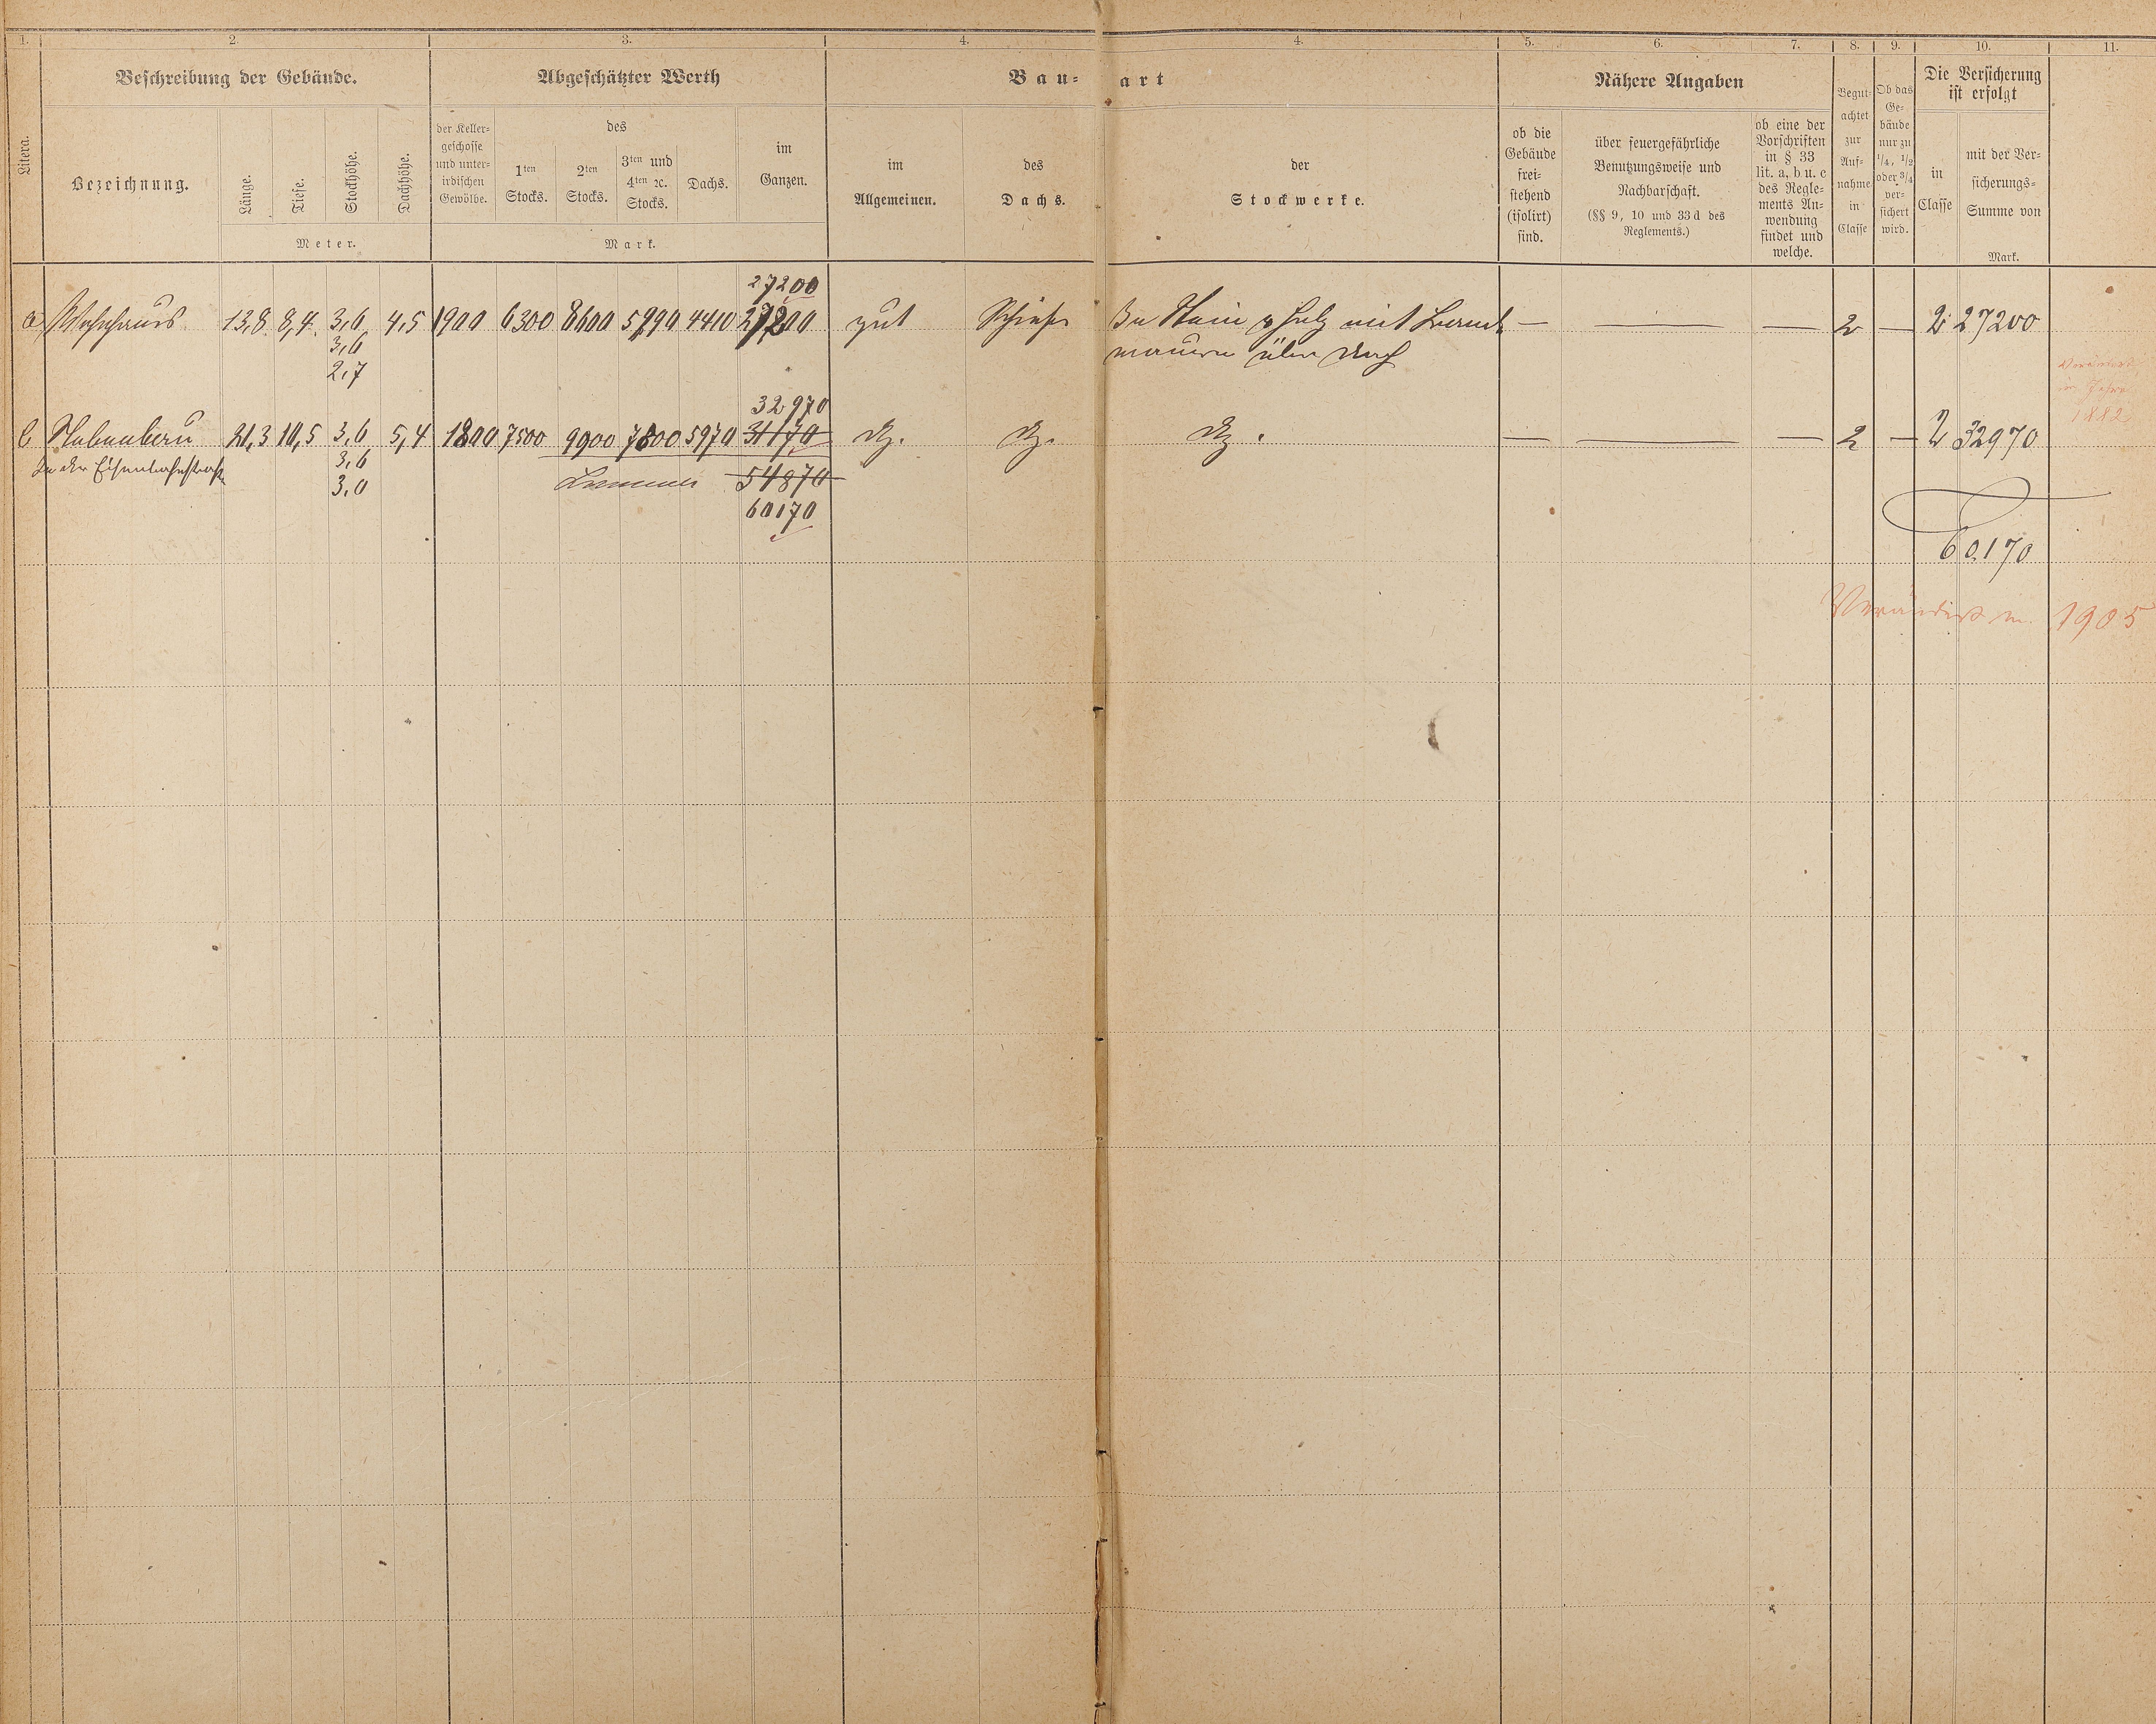 1. 2. 3. 4. 4. 5. 6. 7. 8. 9. 10. 11.
Litera.
Beschreibung der Gebäude.
Bezeichnung.
Länge.
Tiefe.
Stockhöhe.
Dachhöhe.
Meter.
Abgeschätzter Werth
der Keller-
geschosse
und unter-
irdischen
Gewölbe.
des
1ten
Stocks.
2ten
Stocks.
3ten und
4ten ꝛc.
Stocks.
Dachs.
im
Ganzen.
Mark.
Bau-art
im
Allgemeinen.
des
Dachs.
der
Stockwerke.
Nähere Angaben
ob die
Gebäude
frei-
stehend
(isolirt)
sind.
über feuergefährliche
Benutzungsweise und
Nachbarschaft.
(§§ 9, 10 und 33 d des
Reglements.)
ob eine der
Vorschriften
in § 33
lit. a, b u. c
des Regle-
ments An-
wendung
findet und
welche.
Begut-
achtet
zur
Auf-
nahme
in
Classe
Ob das
Ge-
bäude
nur zu
1/4, 1/2
oder 3/4
ver-
sichert
wird.
Die Versicherung
ist erfolgt
in
Classe
mit der Ver-
sicherungs-
Summe von
Mark.
27200
a Wohnhaus 13,8 8,4 3,6 4,5 1900 6300 8600 5990 4410 27200 gut Schiefer In Stein u Holz mit Brand — — — 2 — 2 27200
3,6 mauern über Dach
2,7
Verändert
im Jahre
1882
32970
b Nebenbau 21,3 10,5 3,6 5,4 1800 7500 9900 7800 5970 31170 dg. dg. dg. — — — 2 — 2 32970
In der Eisenbahnstraße 3,6
3,0 Summa 54870
60170
60170
Verändert in 1905